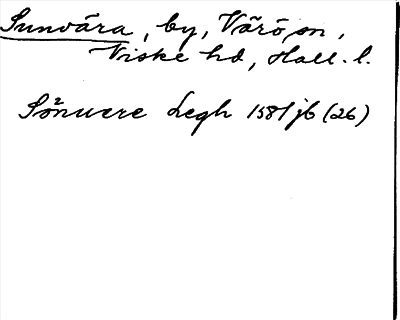 Sunvära, by, Värö sn,
Viske hd, Hall. l.
Sönwere Legh 1581 jb (26)